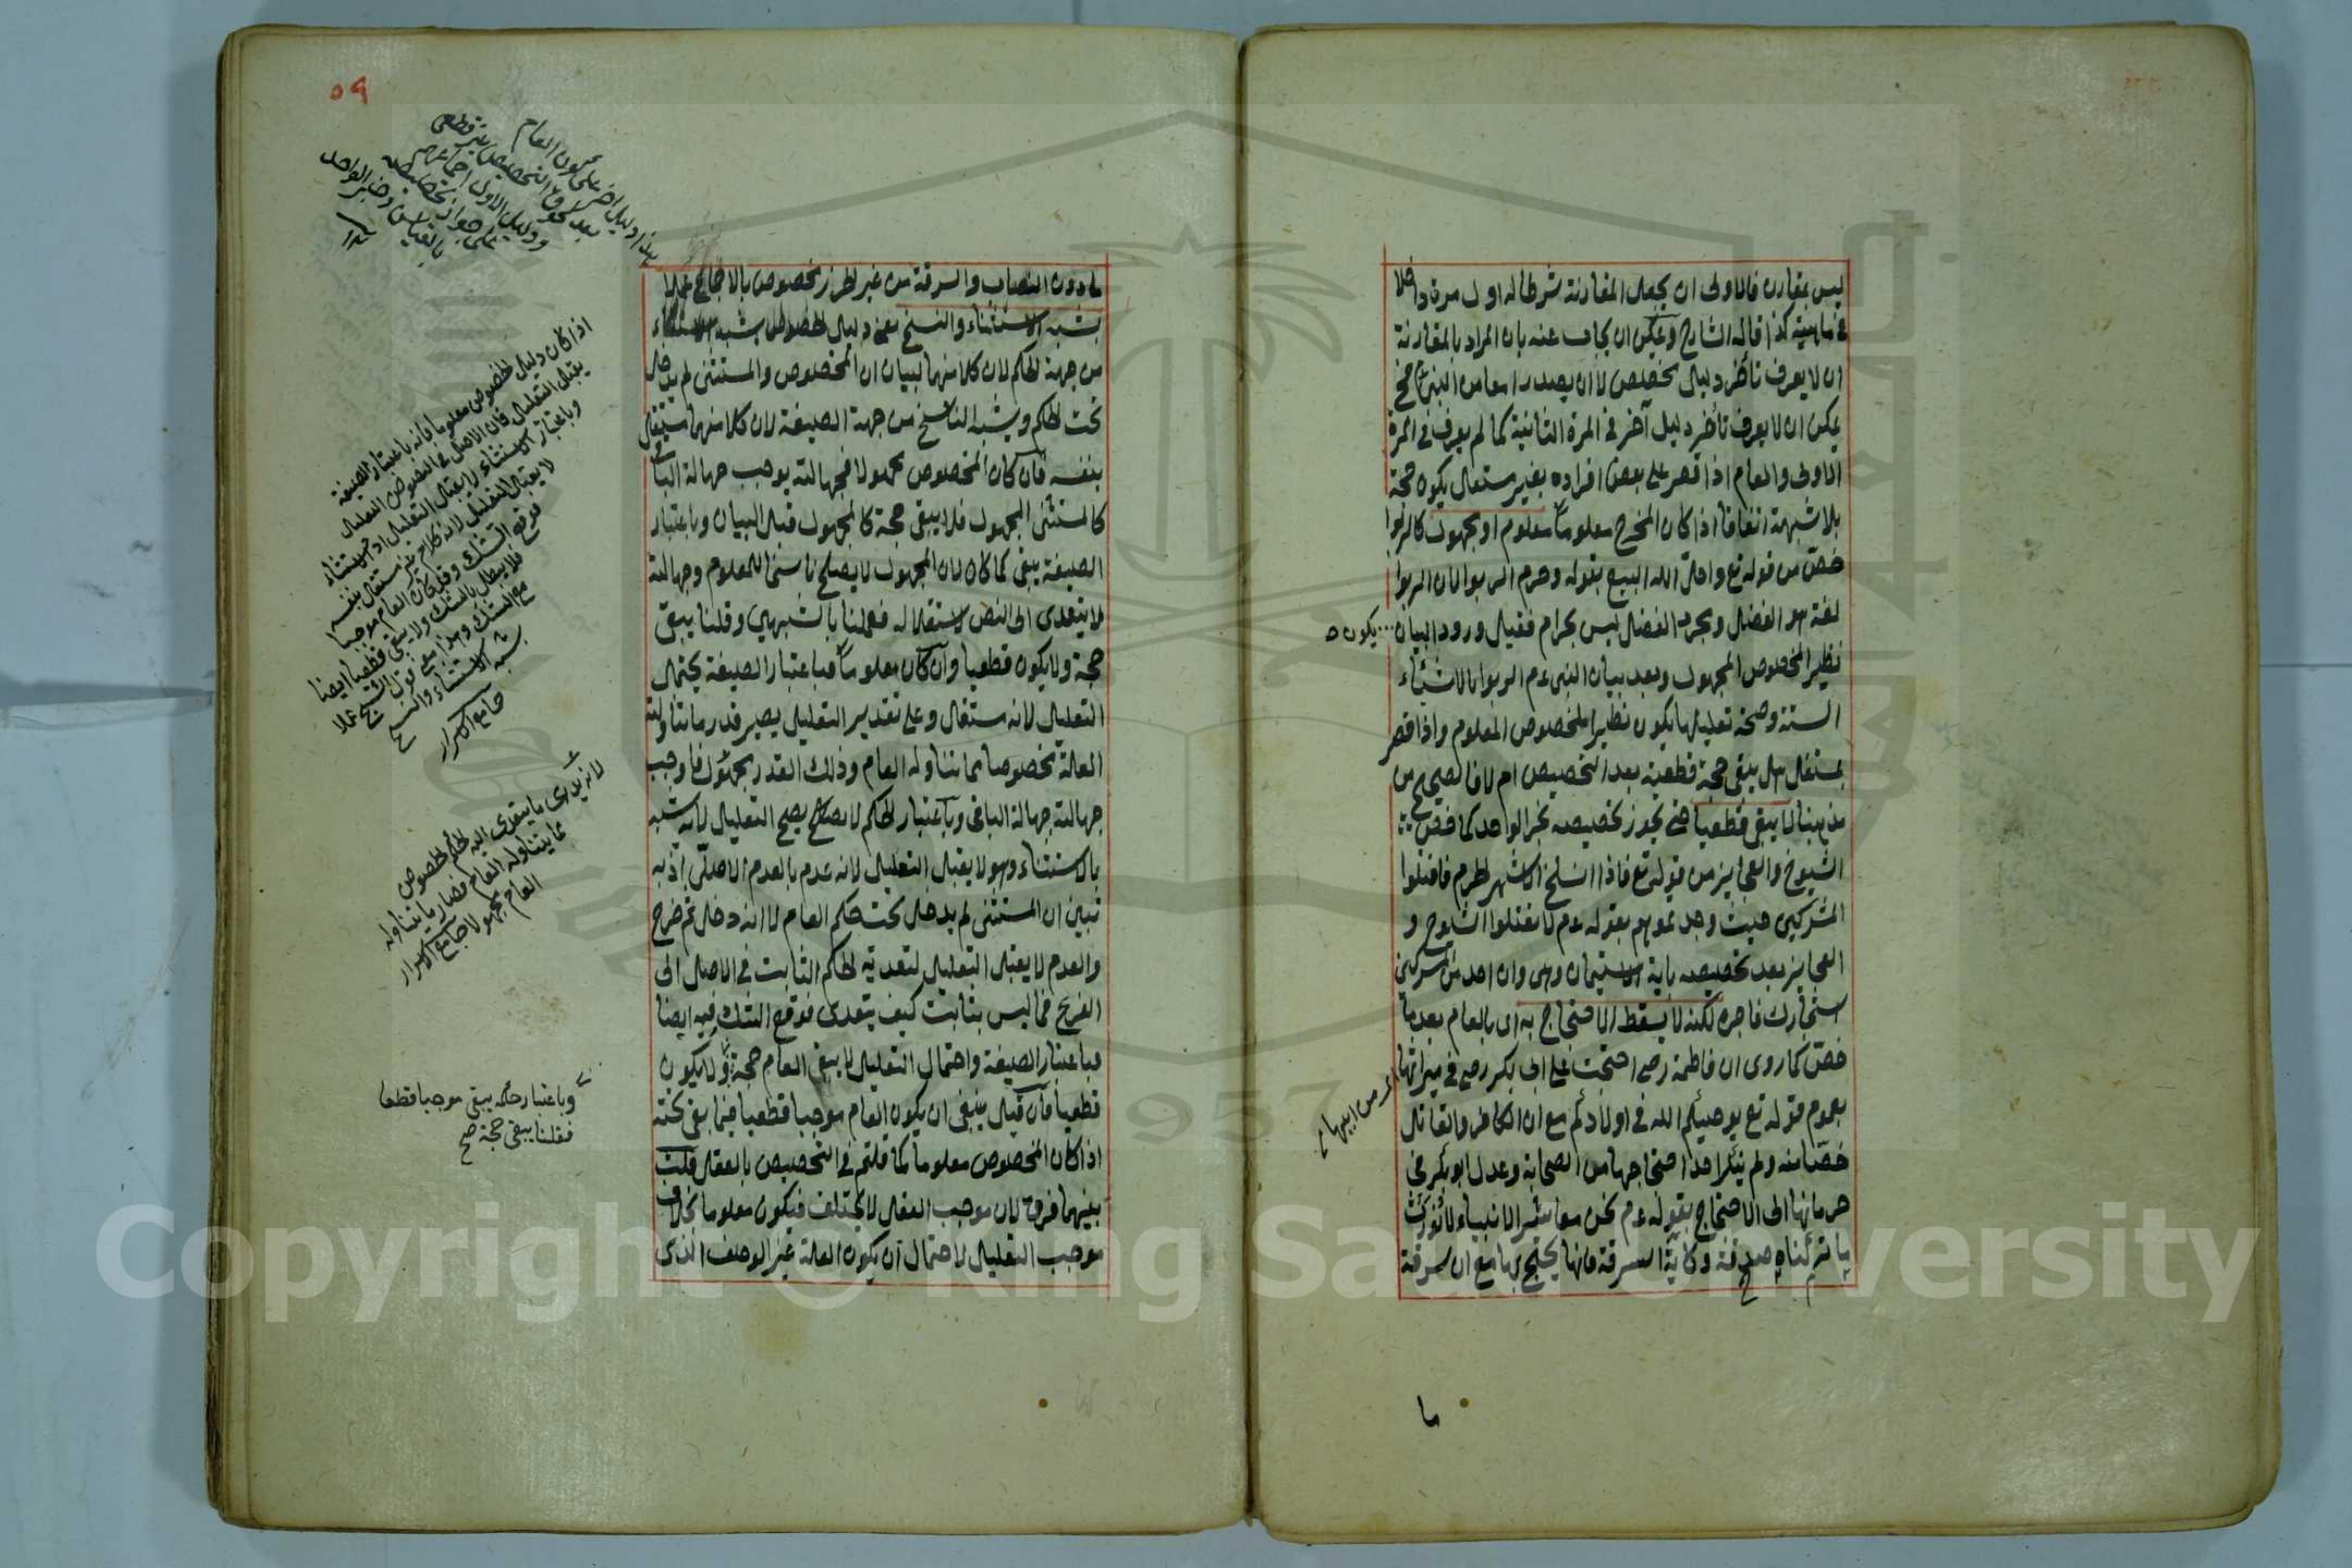 ليس بمقارن فالاولى ان يجعل المقارنة شرطا له اول مرة داخلا
في ماهيته كذا قاله الشارح ويمكن ان يجاب عنه بان المراد بالمقارنة
ان لا يعرف تأخر دليل تخصيص لا ان يصدر معا من النبي عم فح
يمكن ان لا يعرف تأخير دليل آخر في المرة الثانية كما لم يعرف في المرة
الاولى والعام اذا قصر على بعض افراده بغير مستقل يكون حجة
بلا شبهة اتفاقا اذا كان المخرج معلوما معلوم او مجهول كالربوا
خص من قوله تع واحل الله البيع بقوله وحرم الربوا لان الربوا
لغة هو الفضل ومجرد الفضل ليس بحرام فقبل ورود البيان
يكون
نظير المخصوص المجهول وبعد بيان النبي عم الربوا بالاشياء
الستة وصحة تعليلها يكون نظير المخصوص المعلوم واذا قصر
بمستقل هل يبقى حجة قطعية بعد التخصيص ام لا فالصحيح من
مذهبنا لا يبقى قطعيا حتى يجوز تخصيصه بخبر الواحد كما خص
الشيوخ والعجايز من قوله تع فاذا انسلخ الاشهر الحرم فاقتلوا
المشركين حيث وجدتموهم بقوله عم لا تقتلوا الشيوخ و
العجايز بعد تخصيصه باية الاستيمان وهى وان احد من المشركين
استجارك فاجره لكنه لا يسقط الاحتجاج به اى بالعام بعد ما
خص كما روى ان فاطمة رضي احتجت على ابى بكر رضي في ميراثها
من ابيها
بعموم قوله تع يوصيكم الله في اولادكم مع ان الكافر والقاتل
خصا منه ولم ينكر احد احتجاجها من الصحابة وعدل ابو بكر في
حرمانها الى الاحتجاج بقوله عم نحن معاشر الانبياء لا نورث
ما تركناه صدقة وكاية السرقة فانها يحتج بها مع ان سرقة
ما
٥٩
ما دون النصاب والسرقة من غير الحرز مخصوص بالاجماع عملا
بشبه الاستثناء والنسخ يعنى دليل الخصوص يشبه الاستثناء
من جهة الحكم لان كلا منهما لبيان ان المخصوص والمستثنى لم يدخل
تحت الحكم ويشبه الناسخ من جهة الصيغة لان كلا منهما مستقل
بنفسه فان كان المخصوص مجهولا فجهالته يوجب جهالة الباقي
كالمستثنى المجهول فلا يبقى حجة كالمجهول قبل البيان وباعتبار
الصيغة يبقى كما كان لان المجهول لا يصلح ناسخا للمعلوم وجهالته
لا يتعدى الى النص لاستقلاله فعملنا بالشبهين وقلنا يبقى
حجة ولا يكون قطعيا وان كان معلوما فباعتبار الصيغة يحتمل
التعليل لانه مستقل وعلى تقدير التعليل يصير قدر ما تناولته
العلة مخصوصا مما يتناوله العام وذلك القدر مجهول فاوجب
جهالته جهالة الباقي وباعتبار الحكم لا يصح التعليل لانه شبه
بالاستثناء وهو لا يقبل التعليل لانه عدم بالعدم الاصلى اذ به
تبين ان المستثنى لم يدخل تحت حكم العام لا انه دخل ثم خرج
والعدم لا يقبل التعليل لتعدية الحكم الثابت في الاصل الى
الفرع فما ليس بثابت كيف يتعدى فوقع الشك فيه ايضا
فباعتبار الصيغة واحتمال التعليل لا يبقى العام حجة ولا يكون
قطعيا فان قيل ينبغى ان يكون العام موجبا قطعيا فيما بقى تحته
اذا كان المخصوص معلوما كما قلتم في التخصيص بالعقل قلت
بينهما فرق لان موجب العقل لا يختلف فيكون معلوما بخلاف
موجب التعليل لاحتمال ان يكون العلة غير الوصف الذى
هذا دليل اخر على كون العام
بعد لحوق التخصيص غير قطعى
ودليل الاول اجماعهم
على جواز تخصيصه
بالقياس وخبر الواحد
اذا كان دليل الخصوص معلوما فانه باعتبار الصيغة
يقبل التعليل فان الاصل في النصوص التعليل
وباعتبار الاستثناء لا يقبل التعليل اذ الاستثناء
لا يقبل التعليل لانه كلام غير مستقل بنفسه
فوقع الشك وقد كان العام موجبا
فلا يبطل بالشك ولا يبقى قطعيا ايضا
مع الشك وهذا معنى قول الشيخ عملا
بشبه الاستثناء والنسخ
جامع الاسرار
لا ندرى ما يتعدى اليه حكم الخصوص
مما يتناوله العام فصار ما يتناوله
العام مجهولا جامع الاسرار
وباعتبار حكمه يبقى موجبا قطعا
فقلنا يبقى حجة صح
Copyright © King Saud University
1957